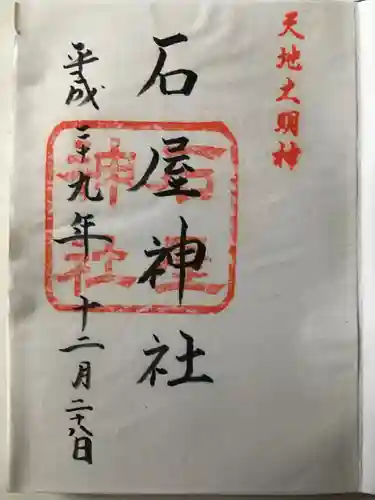 天地大明神
石屋神社
石屋神社
平成二十九年十二月二十八日